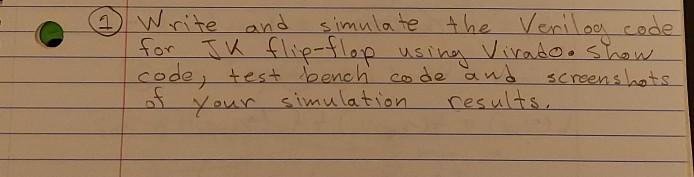 1 Write and simulate the Verilog code
for JK flip-flop using Vivado. Show
code, test bench code and screenshots
of your simulation results.